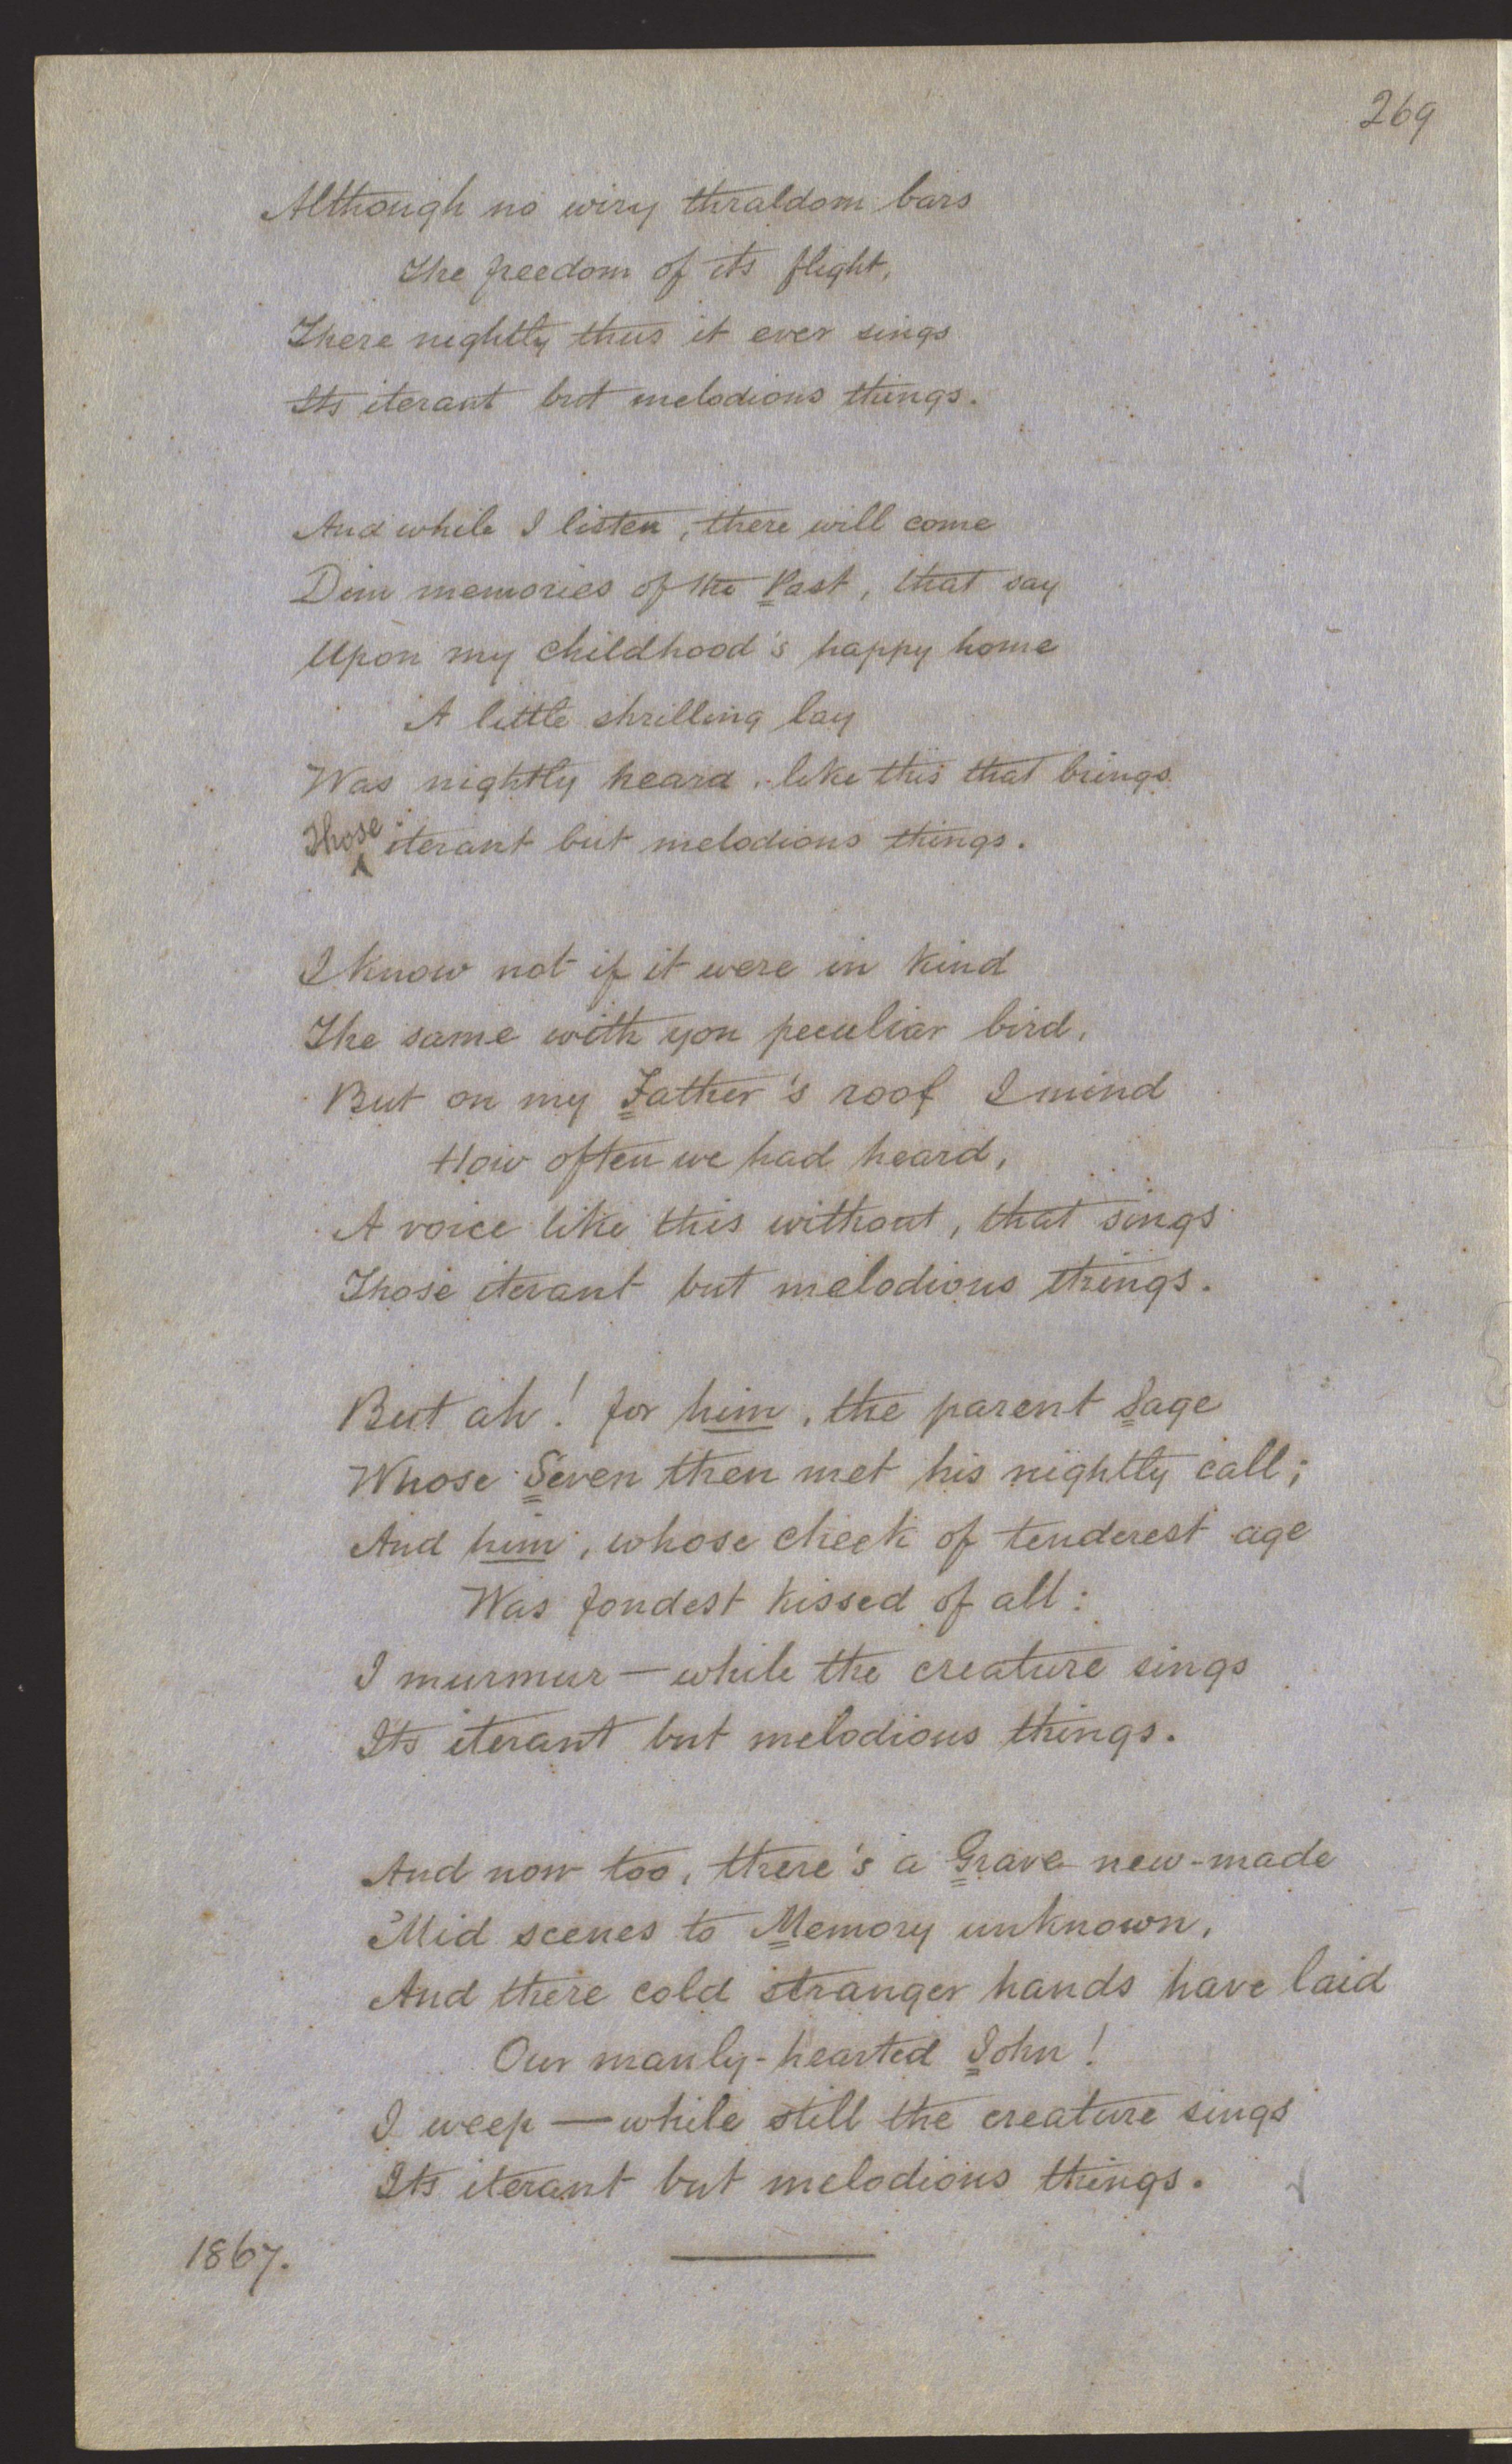 269
Although no wiry thraldom bars
The freedom of its flight,
There nightly thus it ever sings
Its iterant but melodious things.
And while I listen, there will come
Dim memories of the Past, that say
Upon my childhood's happy home
A little shrilling lay
Was nightly heard, like this that brings
Those iterant but melodious things.
I know not if it were in kind
The same with yon peculiar bird,
But on my Father's roof I mind
How often we had heard,
A voice like this without, that sings
Those iterant but melodious things.
But ah! for him, the parent Sage
Whose Seven then met his nightly call;
And him, whose cheek of tenderest age
Was fondest kissed of all:
I murmur—while the creature sings
Its iterant but melodious things.
And now too, there's a Grave new-made
'Mid scenes to Memory unknown,
And there cold stranger hands have laid
Our manly-hearted John!
I weep—while still the creature sings
Its iterant but melodious things.
1867.